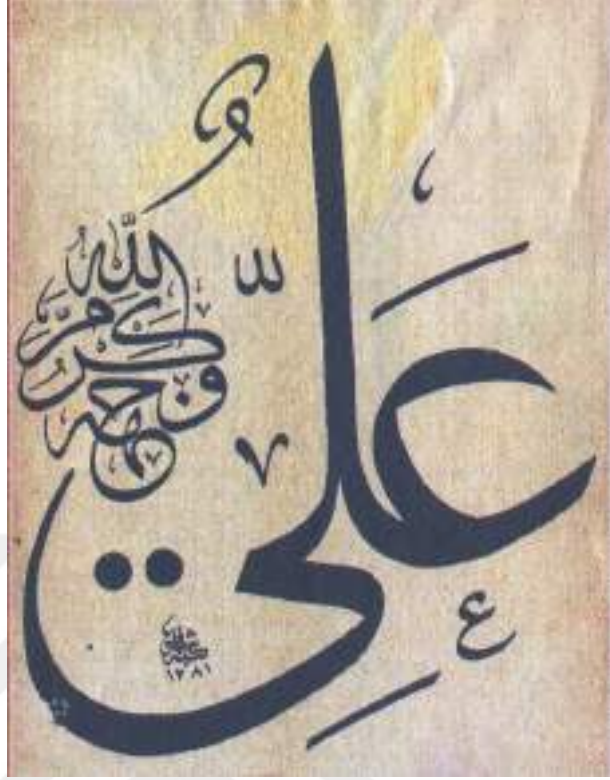 عَلِيّ
كرّم الله وجهه
١٢٨١